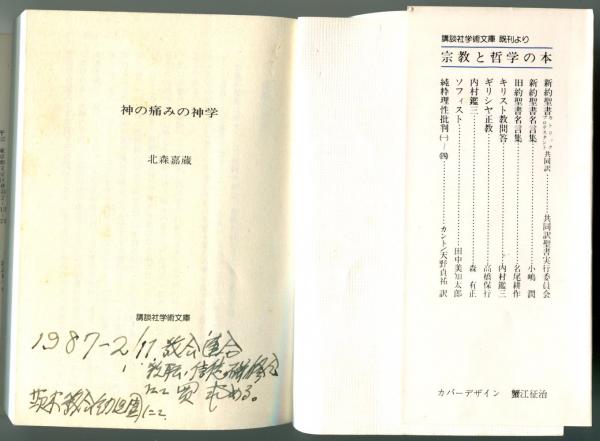 神の痛みの神学
北森嘉蔵
講談社学術文庫
1987-2/11 教会連合
教職、信徒研修会
にて買求める。
茨木教会幼稚園にて
講談社学術文庫 既刊より
宗教と哲学の本
新約聖書 カトリック プロテスタント 共同訳……共同訳聖書実行委員会
新約聖書名言集……小嶋 潤
旧約聖書名言集……名尾耕作
キリスト教問答……内村鑑三
ギリシャ正教……高橋保行
内村鑑三……森 有正
ソフィスト……田中美知太郎
純粋理性批判(一)~(四)……カント/天野貞祐 訳
カバーデザイン 蟹江征治